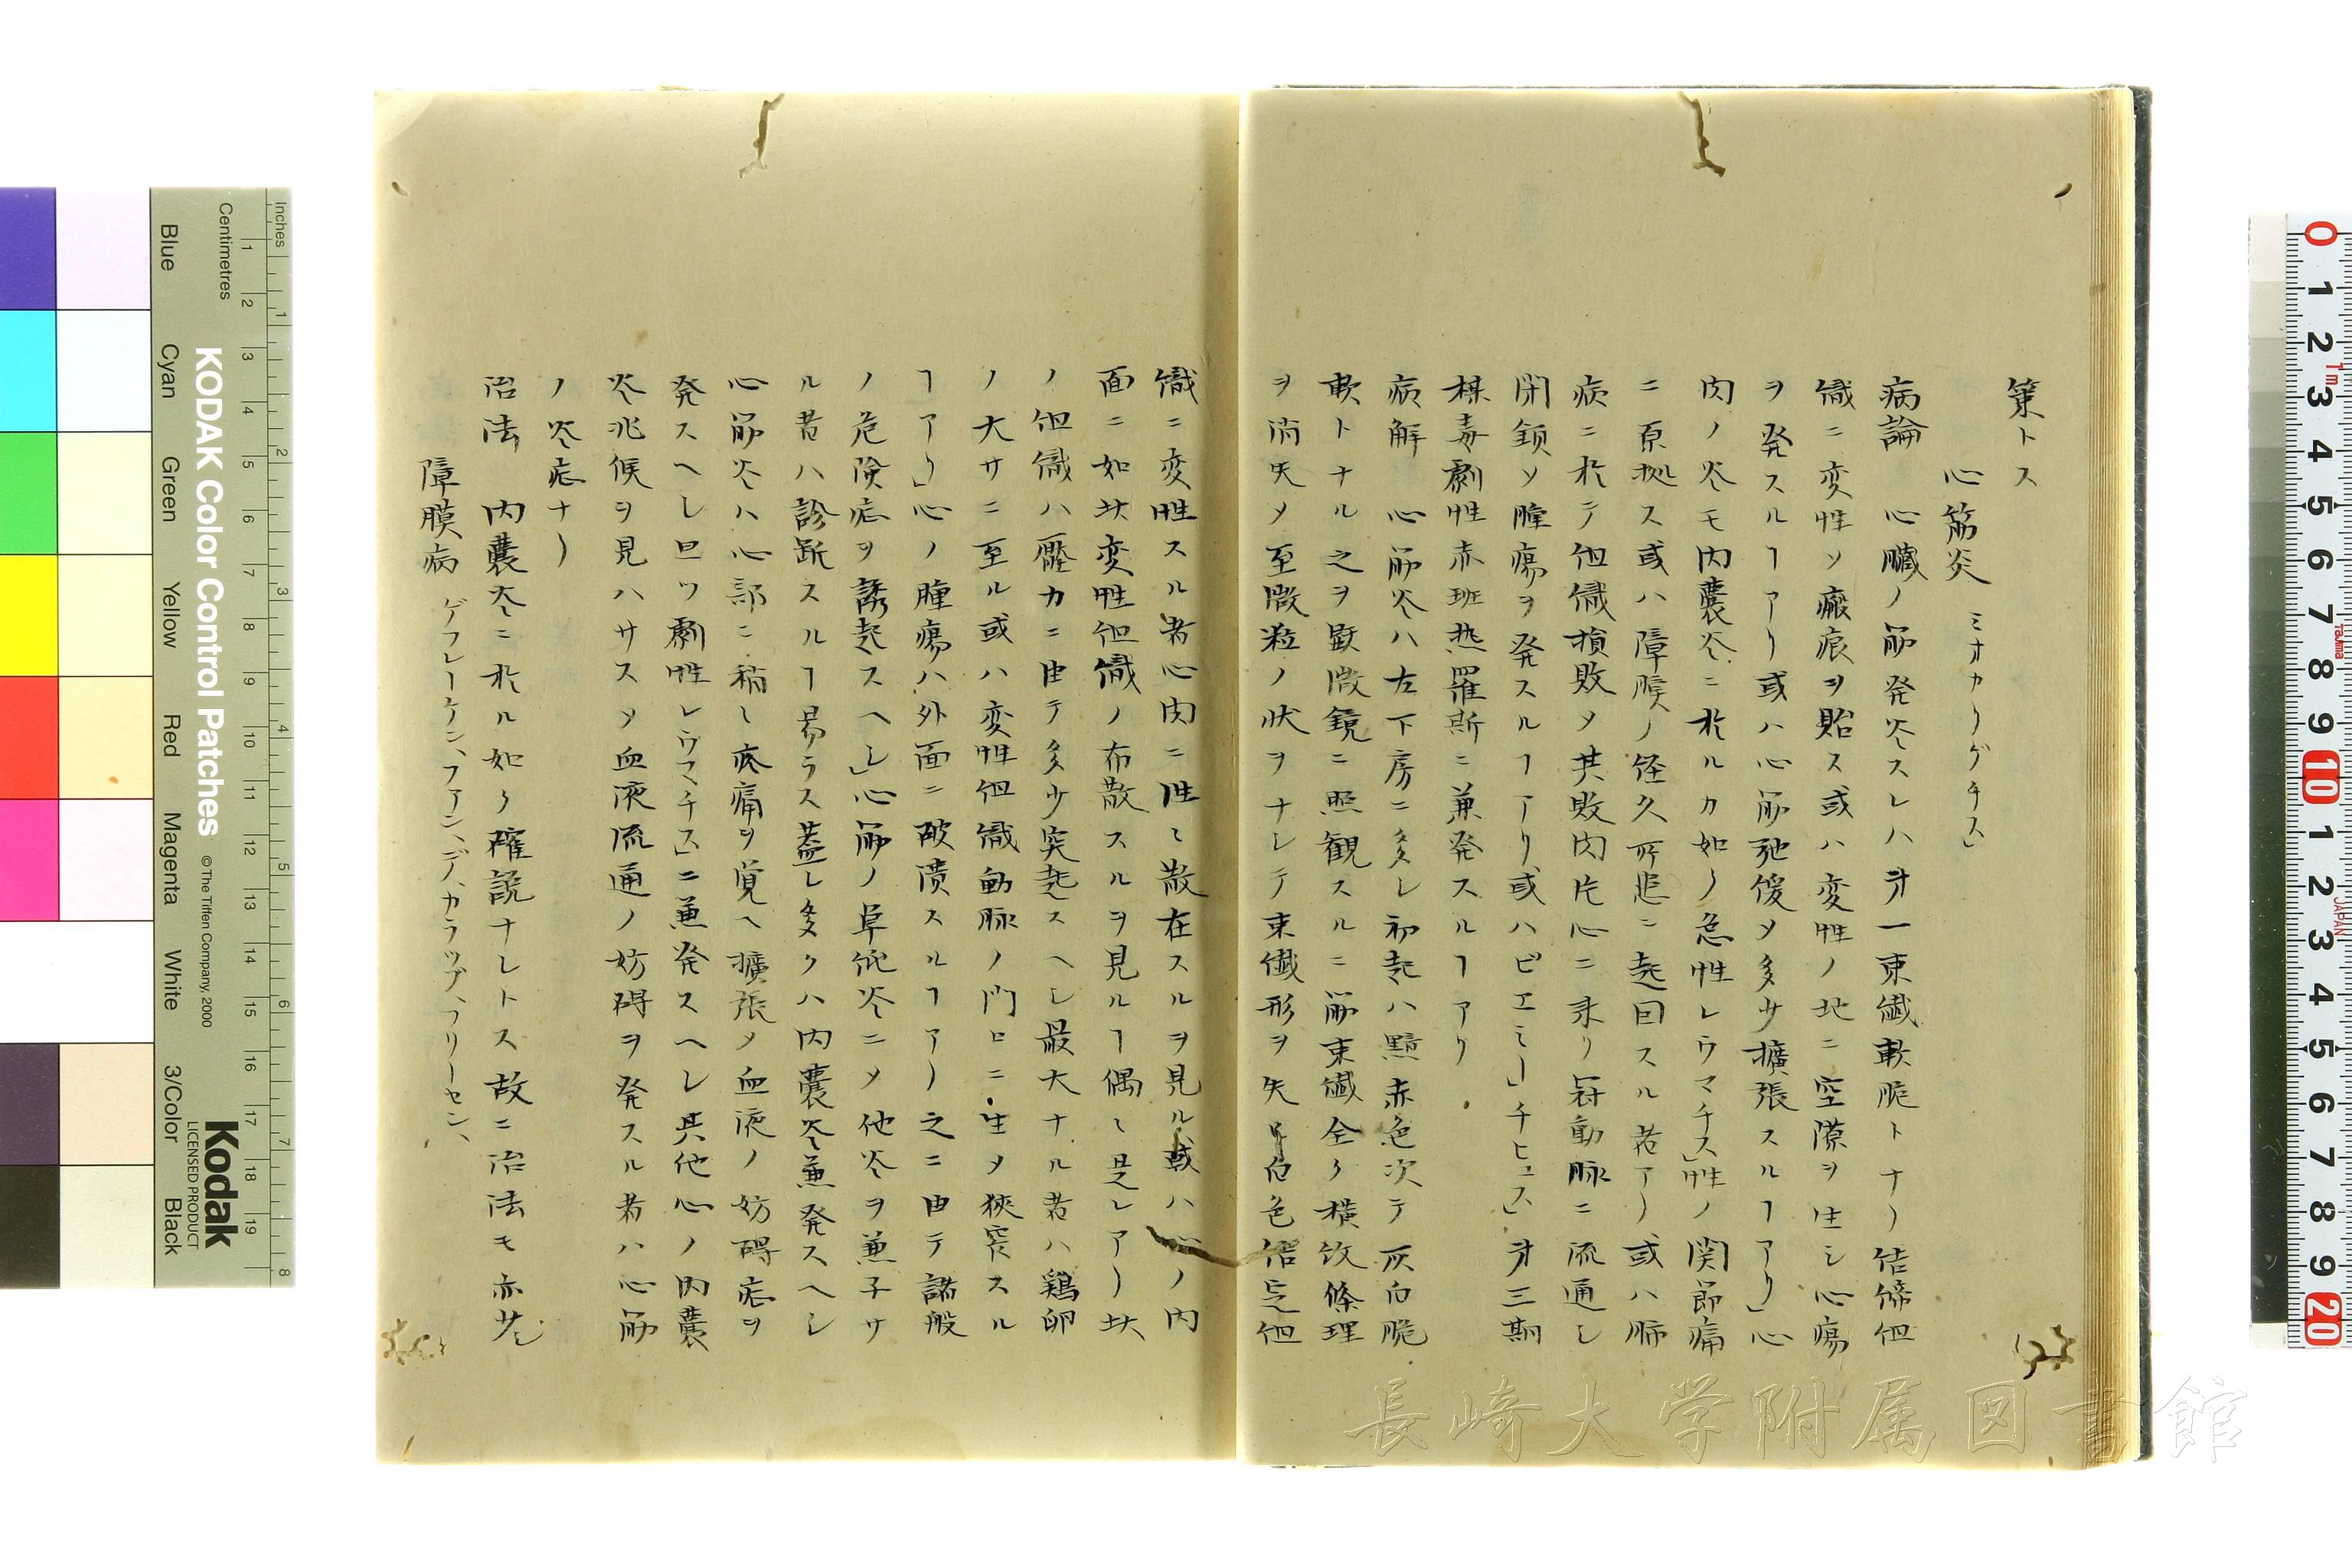 策トス
心筋炎 ミオカリヂチス」
病論 心臓ノ筋発炎スレハ才一束繊軟脆トナリ结締但
織ニ変性ソ瘢痕ヲ貽ス或ハ変性ノ地ニ空隙ヲ生シ心瘍
ヲ発スルヿアリ或ハ心筋弛緩メ多少擴張スルヿアリ」心
肉ノ炎モ内嚢炎ニ於ルカ如ク急性レウマチス」性ノ関節痛
ニ原拠ス或ハ障膜ノ経久所患ニ起因スル者アリ或ハ肺
病ニ於テ但織損敗メ其敗肉片心ニ来リ冠動脈ニ流通シ
閉鎖ソ腫瘍ヲ発スルヿアリ或ハピエミー」チヒュス」才三期
楳毒劇性赤斑熱羅斯ニ兼発スルヿアリ
病解 心筋炎ハ左下房ニ多シ初起ハ黯赤色次テ灰白脆
軟トナル之ヲ顕微鏡ニ照観スルニ筋束繊全ク横紋條理
ヲ消失メ至微粒ノ状ヲナシテ束繊形ヲ失 白色结 但
織ニ変性スル者心内ニ性々散在スルヲ見ル或ハ心ノ内
面ニ如此変性但織ノ布散スルヲ見ルヿ偶々是レアリ此
ノ但織ハ壓力ニ由テ多少突起スヘシ最大ナル者ハ鶏卵
ノ大サニ至ル或ハ変性但織動脈ノ門口ニ生メ狭窄スル
ヿアリ」心ノ腫瘍ハ外面ニ破潰スルヿアリ之ニ由テ諸般
ノ危険症ヲ誘起スヘシ」心筋ノ単純炎ニメ他炎ヲ兼子サ
ル者ハ診断スルヿ易ラス蓋シ多クハ内嚢炎兼発スヘシ
心筋炎ハ心部ニ稍々疼痛ヲ覚ヘ擴張メ血液ノ妨碍症ヲ
発スヘシ且ツ劇性レウマチス」ニ兼発スヘシ其他心ノ内嚢
炎兆候ヲ見ハサスメ血液流通ノ妨碍ヲ発スル者ハ心筋
ノ炎症ナリ
治法 内嚢炎ニ於ル如ク確説ナシトス故ニ治法モ亦少シ
障膜病 ゲフレーケン、ファン、デ、カラップ、フリーセン、
長崎大学附属図書館
KODAK Color Control Patches © The Tiffen Company, 2000
Kodak
LICENSED PRODUCT
Inches 1 2 3 4 5 6 7 8
Centimetres 1 2 3 4 5 6 7 8 9 10 11 12 13 14 15 16 17 18 19
Blue Cyan Green Yellow Red Magenta White 3/Color Black
0 1 2 3 4 5 6 7 8 9 10 1 2 3 4 5 6 7 8 9 20
1m Tajima JAPAN